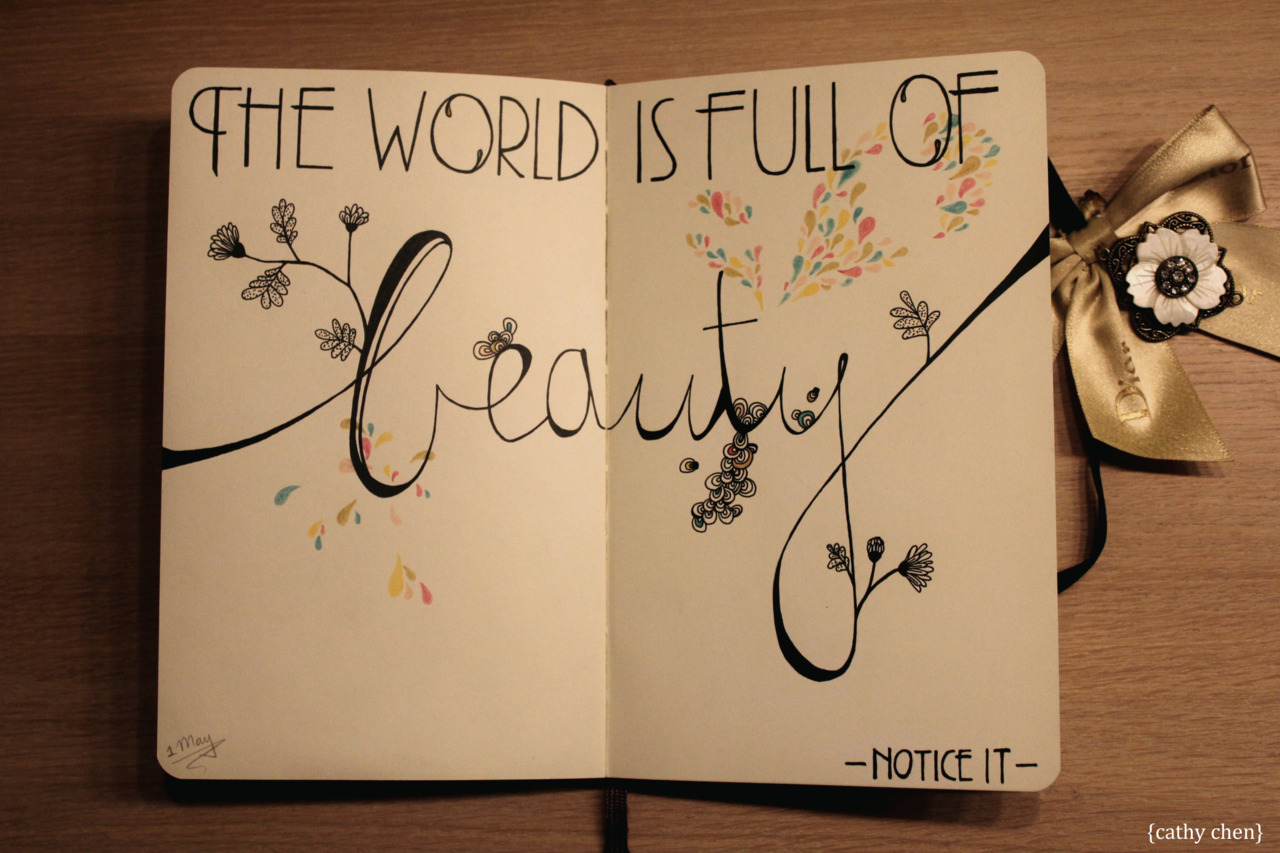 THE WORLD IS FULL OF
beauty
-NOTICE IT-
1 May
Dior
{cathy chen}